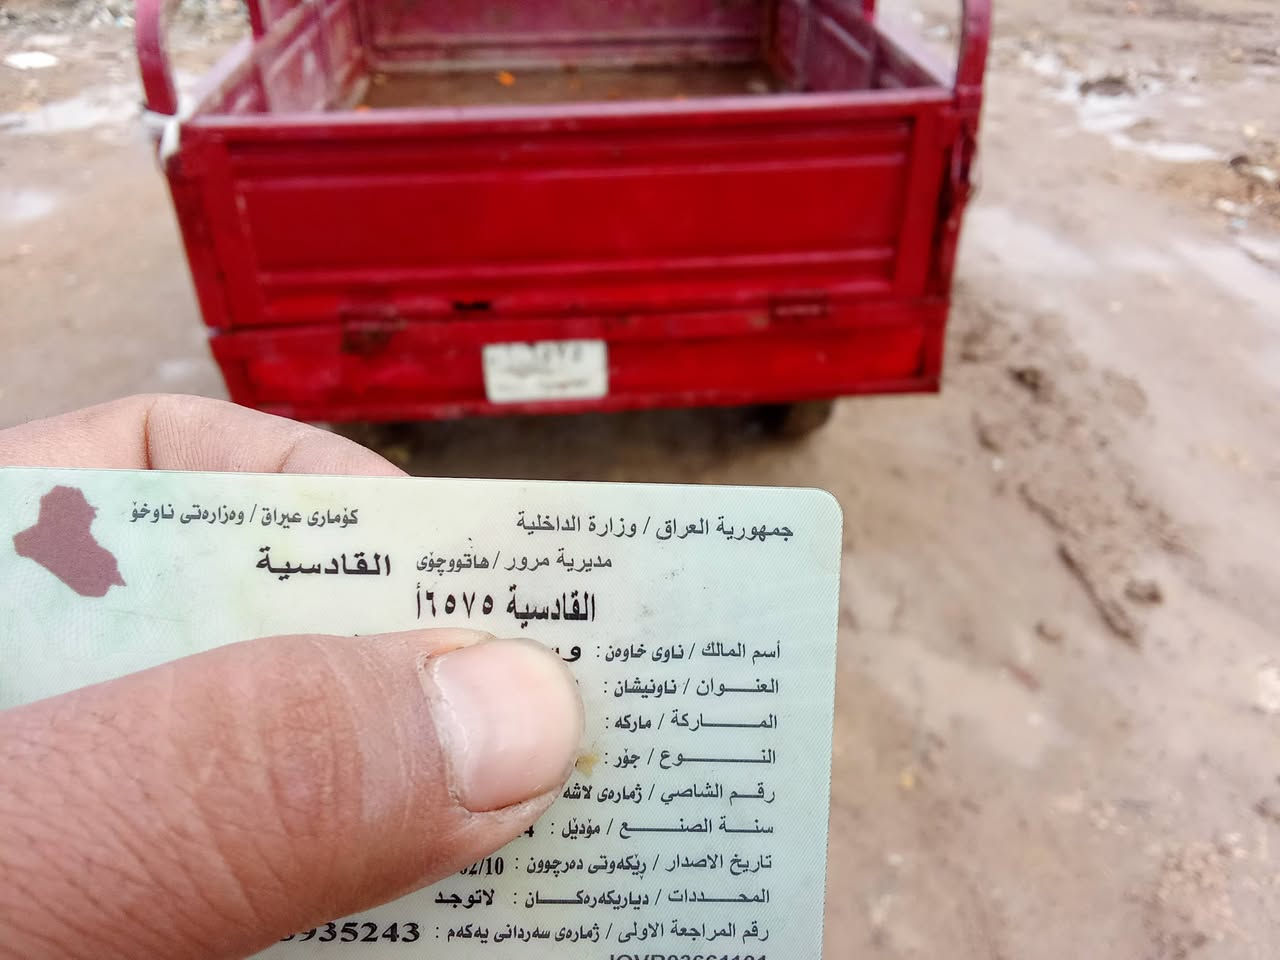 جمهورية العراق / وزارة الداخلية
كۆماری عیراق / وەزارەتی ناوخۆ
مديرية مرور / هاتووچۆی القادسية
القادسية ٦٥٧٥أ
أسم المالك / ناوی خاوەن :
العنـــوان / ناونیشان :
المـــــاركة / ماركه :
النـــــــوع / جۆر :
رقـم الشاصي / ژمارەی لاشه
سنـــة الصنـــــع / مۆدێل :
تاريخ الاصدار / ڕێكەوتی دەرچوون : 02/10
المحـــددات / دیاریكەرەكـــــان : لاتوجد
رقم المراجعة الاولى / ژمارەی سەردانی یەكەم : 935243